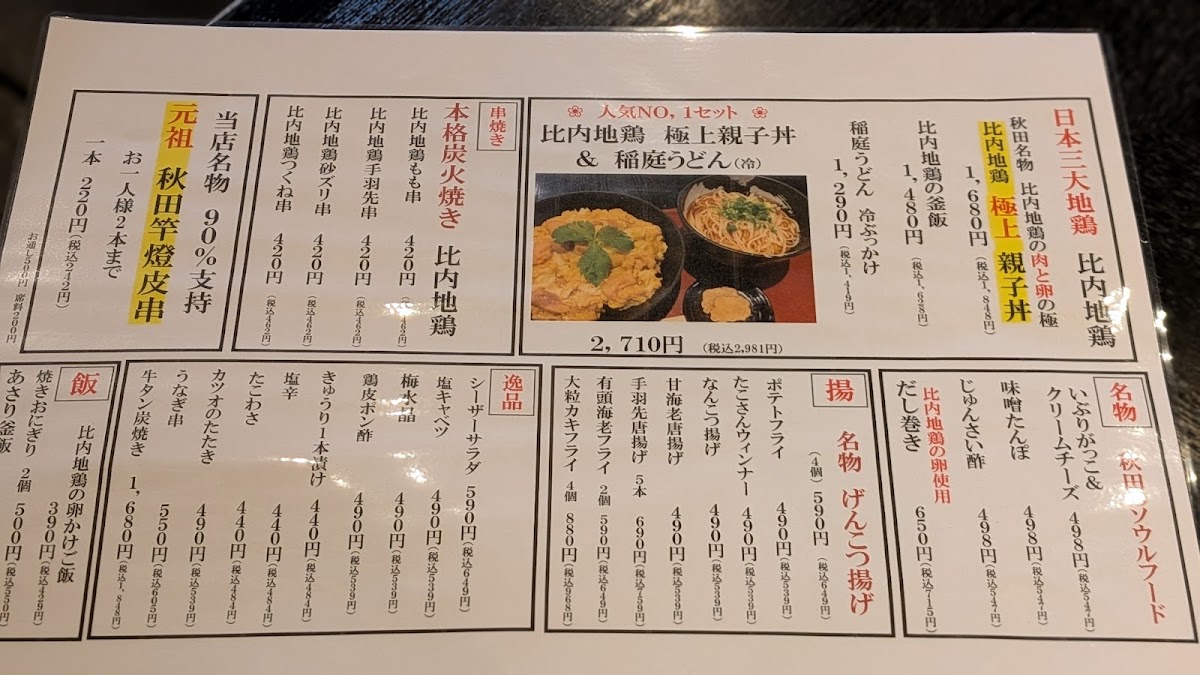 日本三大地鶏 比内地鶏
秋田名物 比内地鶏の肉と卵の極
比内地鶏 極上 親子丼
1,680円(税込1,848円)
比内地鶏の釜飯
1,480円(税込1,628円)
稲庭うどん 冷ぶっかけ
1,290円(税込1,419円)
人気NO,1セット
比内地鶏 極上親子丼
& 稲庭うどん(冷)
2,710円 (税込2,981円)
串焼き
本格炭火焼き 比内地鶏
比内地鶏もも串 420円(税込462円)
比内地鶏手羽先串 420円(税込462円)
比内地鶏砂ズリ串 420円(税込462円)
比内地鶏つくね串 420円(税込462円)
当店名物 90%支持
元祖 秋田竿燈皮串
お一人様2本まで
一本 220円(税込242円)
お通し500円 席料200円
名物 秋田ソウルフード
いぶりがっこ&
クリームチーズ 498円(税込547円)
味噌たんぽ 498円(税込547円)
じゅんさい酢 498円(税込547円)
比内地鶏の卵使用
だし巻き 650円(税込715円)
揚
名物 げんこつ揚げ
(4個)590円(税込649円)
ポテトフライ 490円(税込539円)
たこさんウィンナー 490円(税込539円)
なんこつ揚げ 490円(税込539円)
甘海老唐揚げ 490円(税込539円)
手羽先唐揚げ 5本 690円(税込759円)
有頭海老フライ 2個 590円(税込649円)
大粒カキフライ 4個 880円(税込968円)
逸品
シーザーサラダ 590円(税込649円)
塩キャベツ 490円(税込539円)
梅水晶 490円(税込539円)
鶏皮ポン酢 490円(税込539円)
きゅうり1本漬け 440円(税込484円)
塩辛 440円(税込484円)
たこわさ 440円(税込484円)
カツオのたたき 490円(税込539円)
うなぎ串 550円(税込605円)
牛タン炭焼き 1,680円(税込1,848円)
飯
比内地鶏の卵かけご飯
390円(税込429円)
焼きおにぎり 2個 500円(税込550円)
あさり釜飯